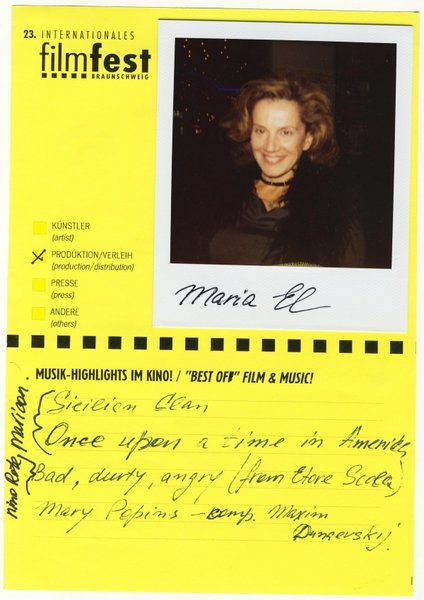 23. INTERNATIONALES
filmfest
BRAUNSCHWEIG
KÜNSTLER
(artist)
PRODUKTION/VERLEIH
(production/distribution)
PRESSE
(press)
ANDERE
(others)
Maria El
MUSIK-HIGHLIGHTS IM KINO! / "BEST OF!" FILM & MUSIC!
Sicilien Clan
Once upon a time in America
Bad, durty, angry (from Etore Scola)
Mary Popins – comp. Maxim
Dunaevskij.
Nino Rota,